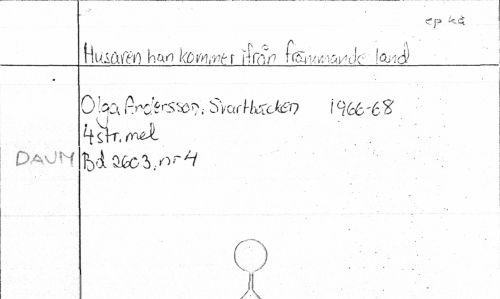 ep kä
Husaren han kommer ifrån främmande land
Olga Andersson, Svartbäcken 1966-68
4 str. mel
DAUM Bd 2603, nr 4